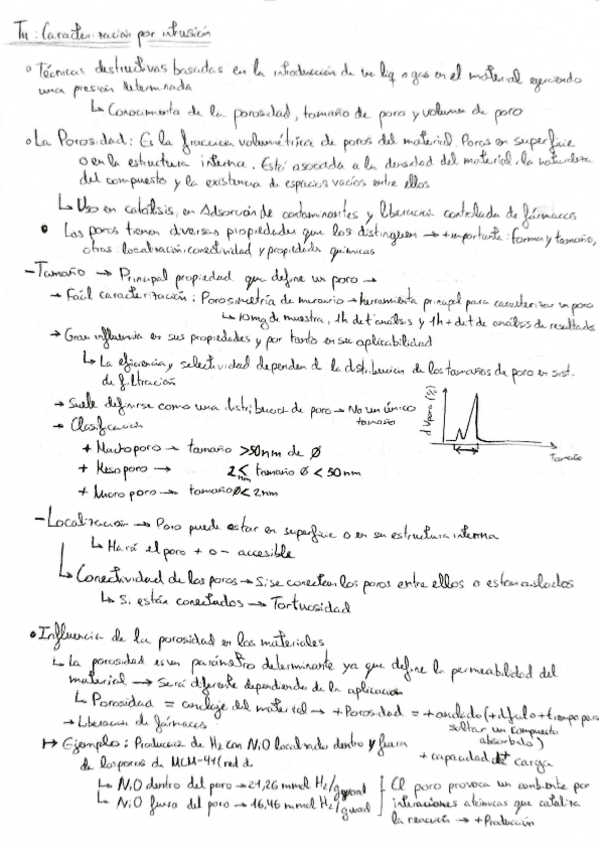 T4: Caracterización por intrusión
o Técnicas destructivas basadas en la introducción de un liq o gas en el material ejerciendo
una presión determinada
↳ Conocimiento de la porosidad, tamaño de poro y volumen de poro
o La Porosidad: Es la fracción volumétrica de poros del material. Poros en superficie
o en la estructura interna. Está asociada a la densidad del material, la naturaleza
del compuesto y la existencia de espacios vacíos entre ellos
↳ Uso en catálisis, en Adsorción de contaminantes y liberación controlada de fármacos
• Los poros tienen diversas propiedades que los distinguen → + importante: forma y tamaño,
otras: localización, conectividad y propiedades químicas
- Tamaño → Principal propiedad que define un poro →
→ Fácil caracterización: Porosimetría de mercurio → herramienta principal para caracterizar un poro
↳ 10mg de muestra, 1h de t análisis y 1h + de t de análisis de resultados
→ Gran influencia en sus propiedades y por tanto en su aplicabilidad
↳ La eficiencia y selectividad dependen de la distribución de los tamaños de poro en sist.
de filtración
→ Suele definirse como una distribución de poro → No un único
tamaño
d Vporo (%)
Tamaño
→ Clasificación
+ Macroporo → tamaño >50nm de Ø
+ Mesoporo → 2 ≤ tamaño Ø < 50nm
nm
+ Microporo → tamaño Ø < 2nm
- Localización → Poro puede estar en superficie o en su estructura interna
↳ Hará el poro + o - accesible
↳ Conectividad de los poros → Si se conectan los poros entre ellos o estan aislados
↳ Si están conectados → Tortuosidad
• Influencia de la porosidad en los materiales
↳ La porosidad es un parámetro determinante ya que define la permeabilidad del
material → Será diferente dependiendo de la aplicación
↳ Porosidad = anclaje del material → + Porosidad = + anclado (+ dificil o + tiempo para
soltar un compuesto
absorbido)
→ Liberación de fármacos
+ capacidad de carga
↦ Ejemplo: Producción de H2 con NiO localizado dentro y fuera
de los poros de MCM-41 (red de
↳ NiO dentro del poro → 21,26 mmol H2/g
↳ NiO fuera del poro → 16,46 mmol H2/g
El poro provoca un ambiente por
interacciones atómicas que cataliza
la reacción → + Producción